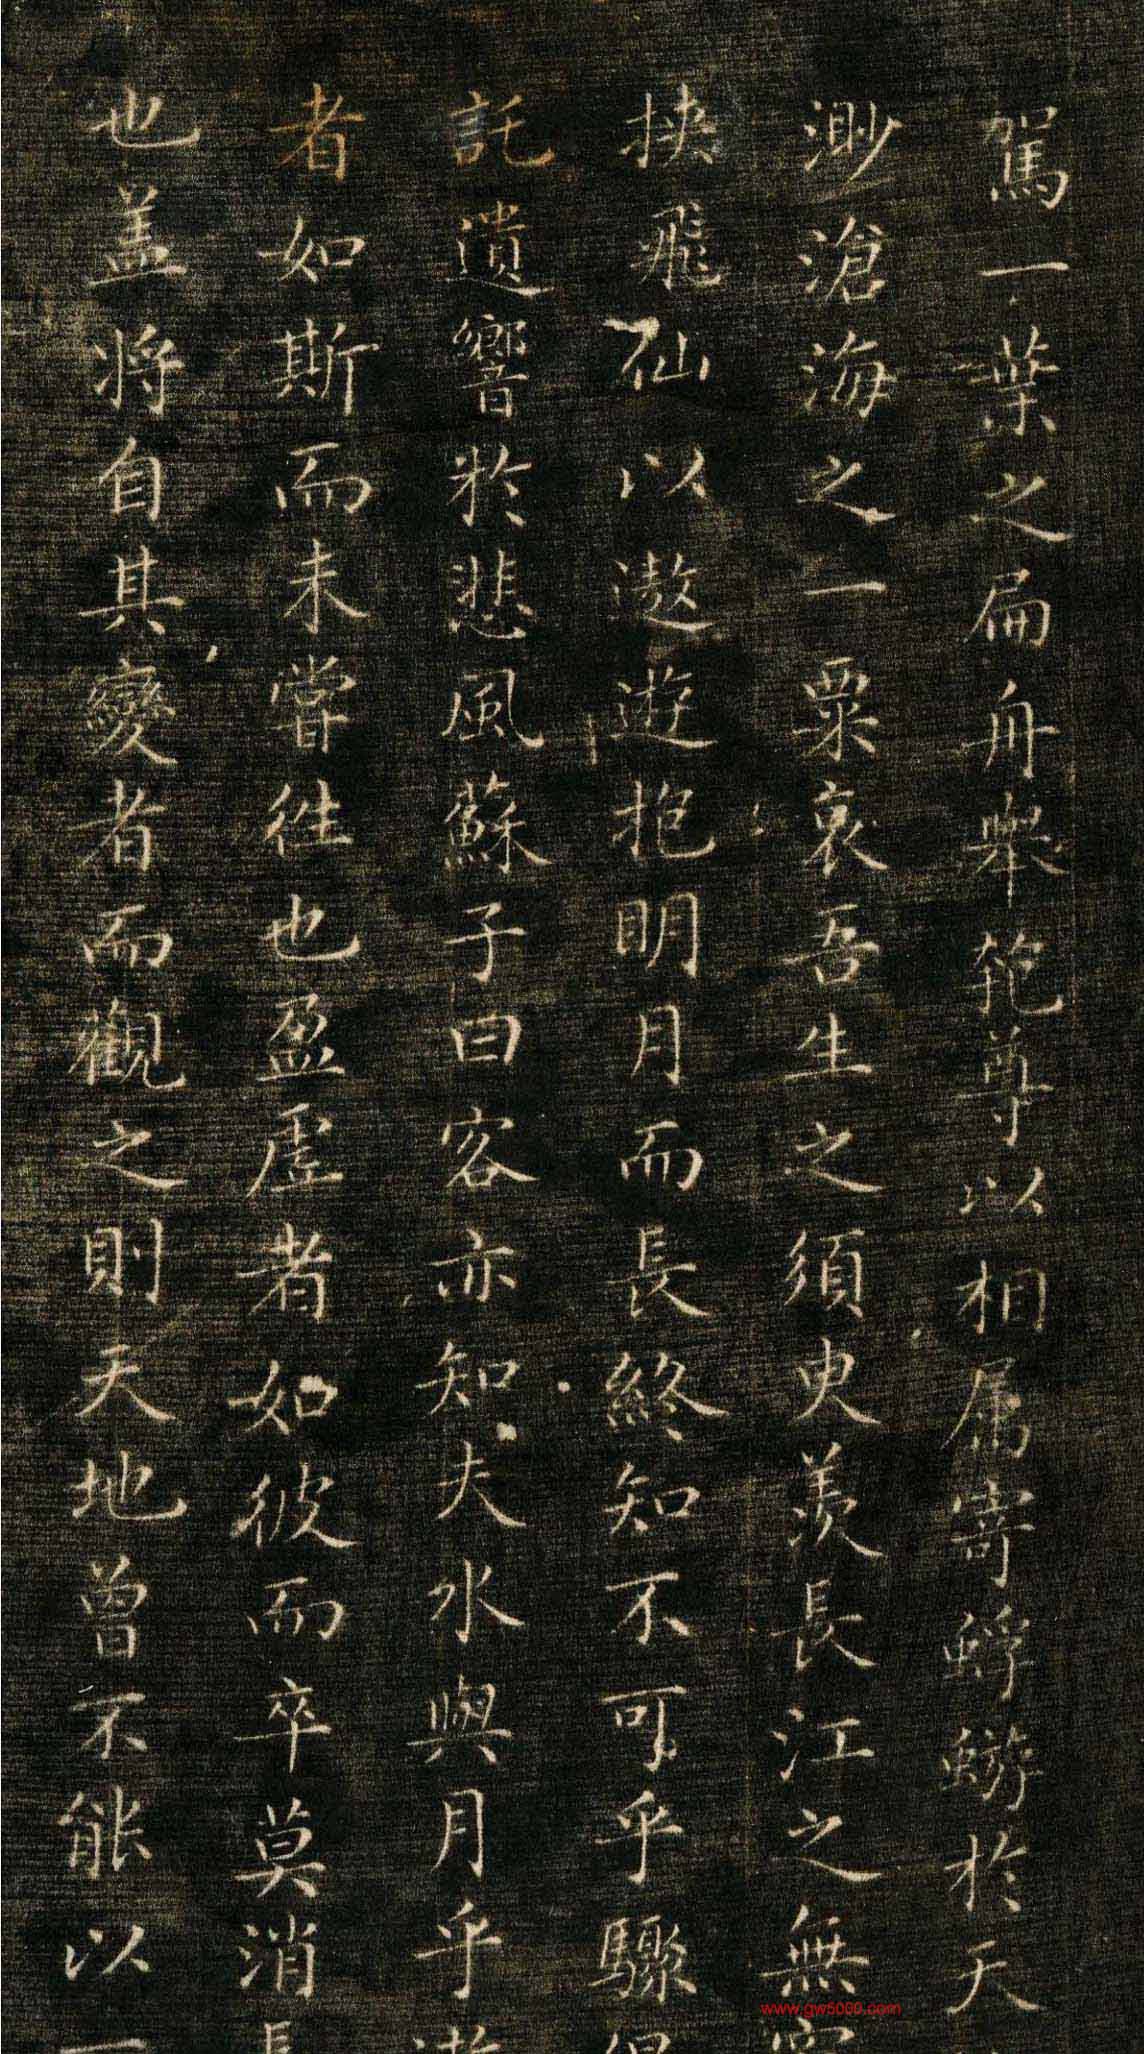 駕一葉之扁舟舉匏尊以相属寄蜉蝣於天
渺滄海之一粟哀吾生之須臾羨長江之無窮
挟飛仙以遨遊抱明月而長終知不可乎驟得
託遺響於悲風蘇子曰客亦知夫水與月乎逝
者如斯而未嘗往也盈虛者如彼而卒莫消長
也盖将自其變者而觀之則天地曾不能以一
www.gw5000.com